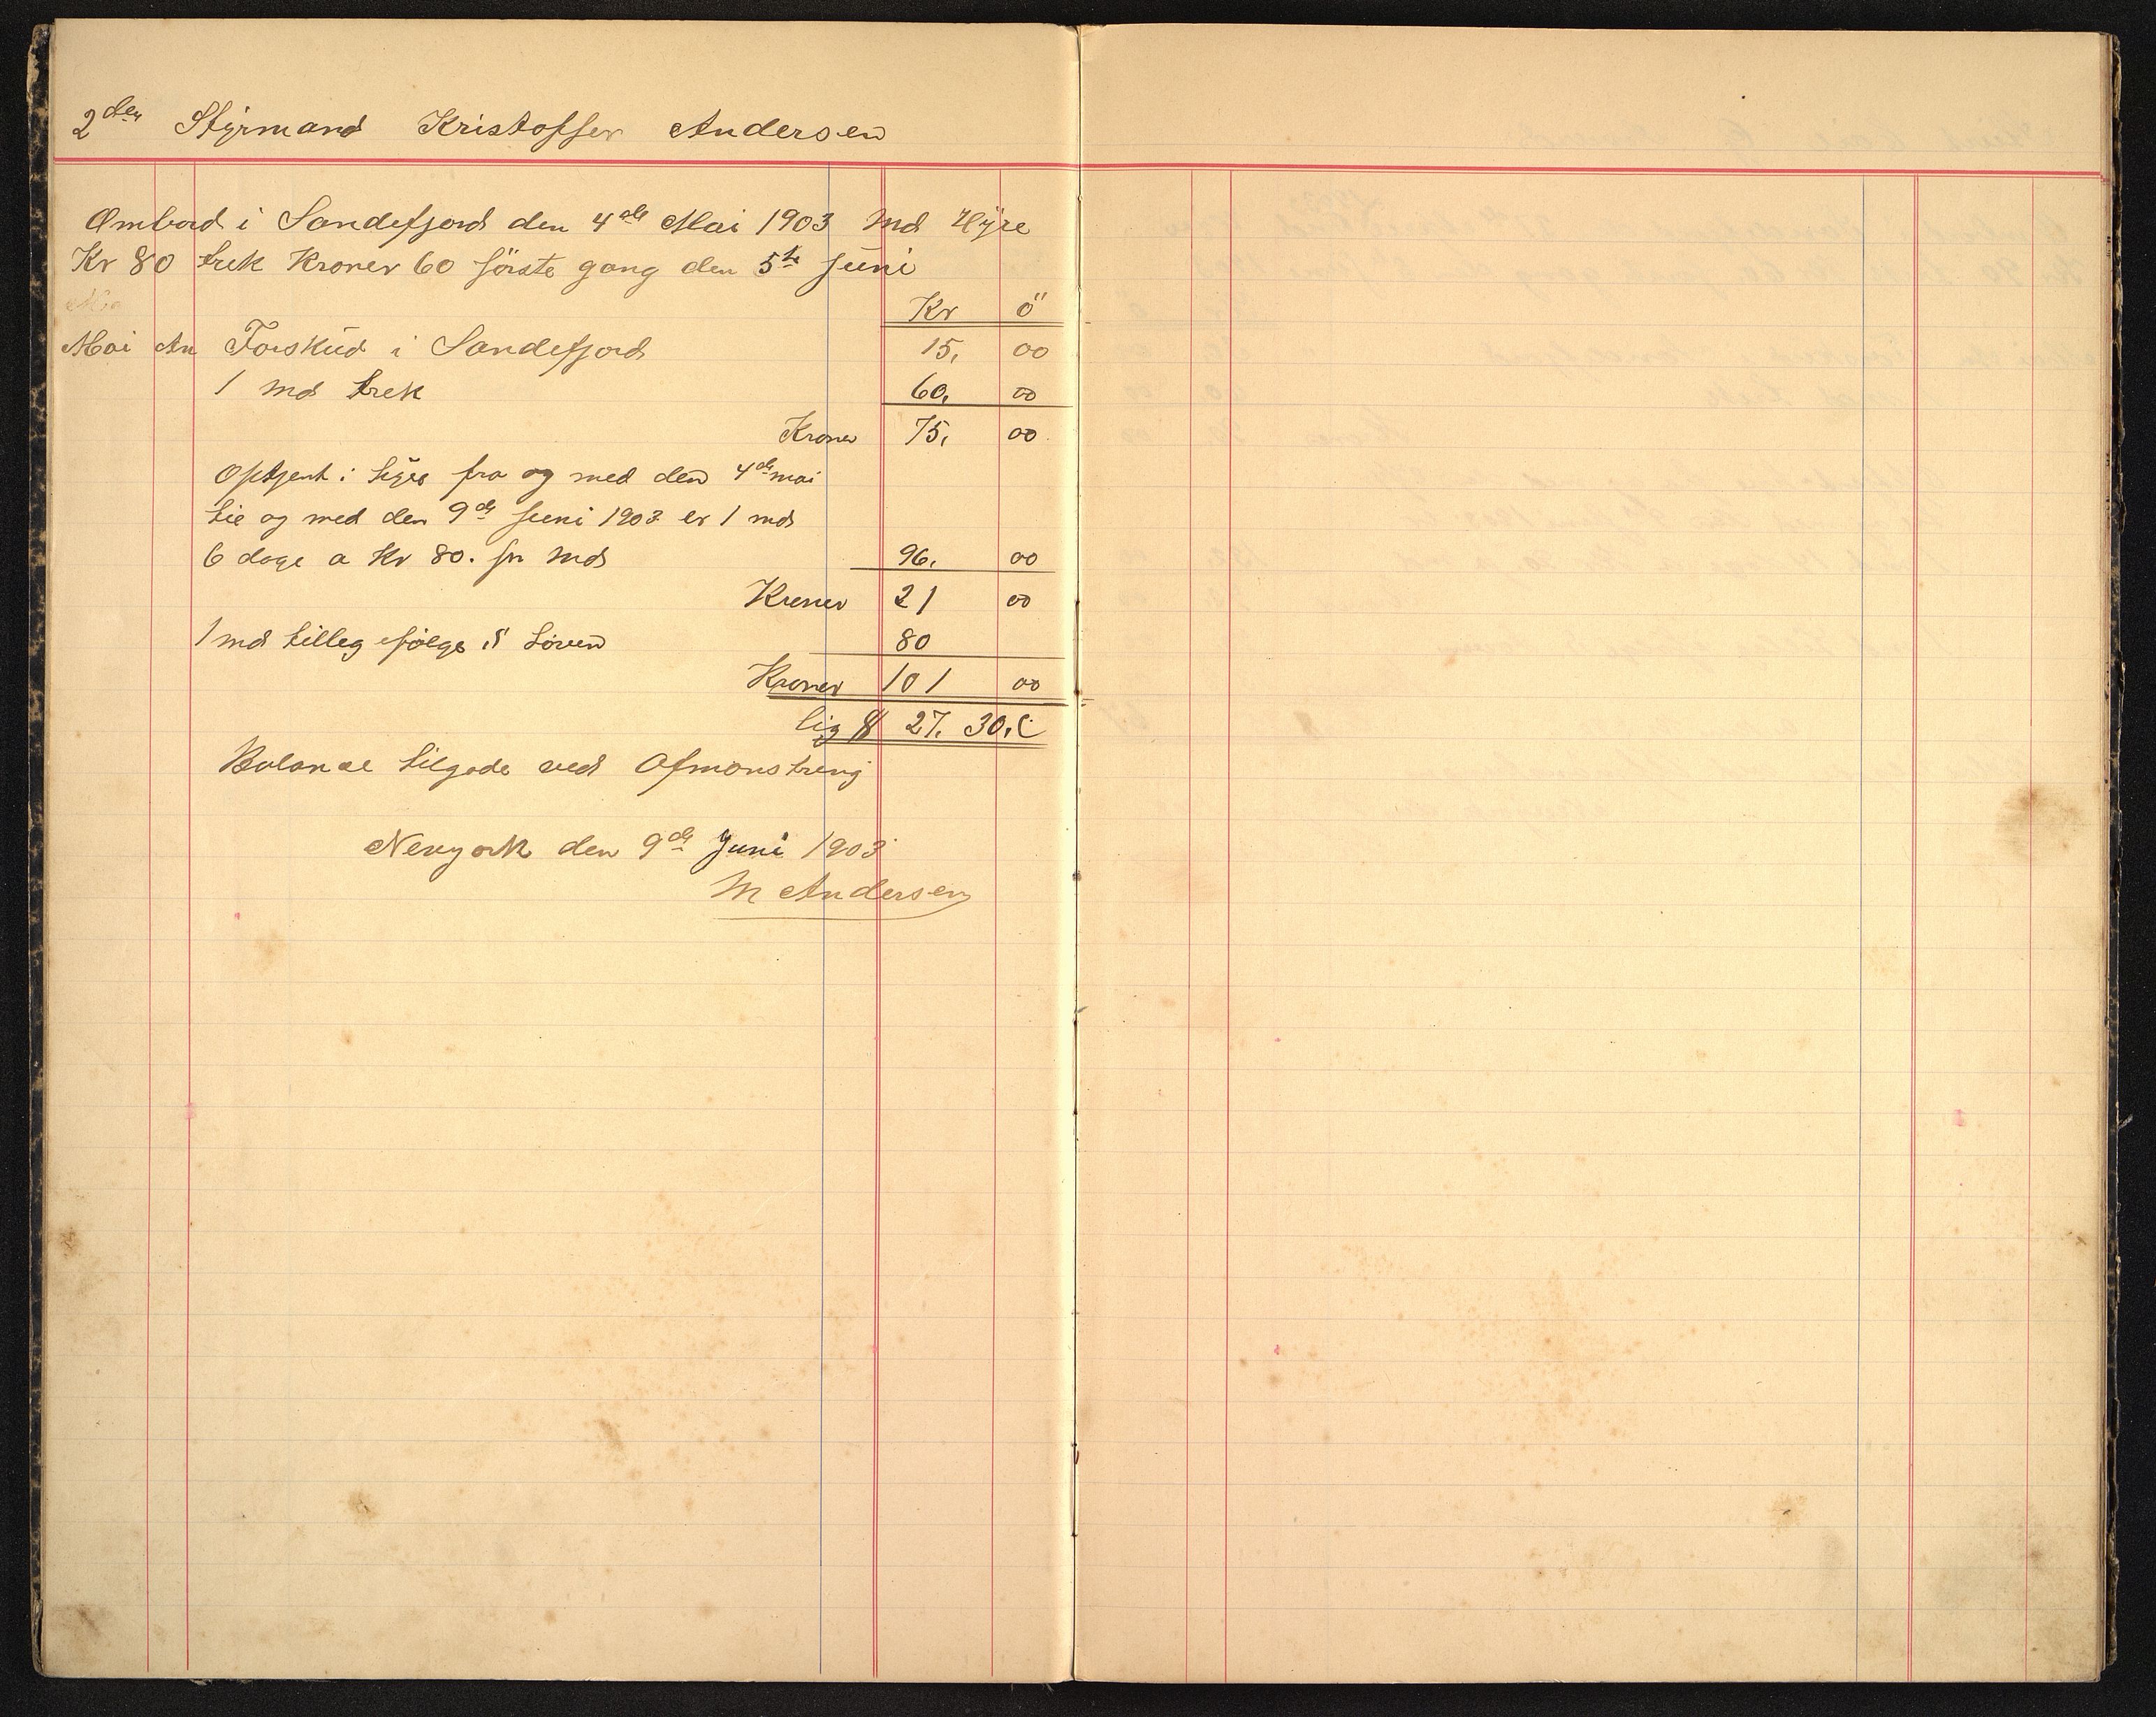 2den Styrmand Kristoffer Andersen
Ombord i Sandefjord den 4de Mai 1903 Md Hÿre
Kr 80 trek Kroner 60 förste gang den 5te Juni
Kr Ö
Mai An Forskud i Sandefjord 15, 00
1 md trek 60, 00
Kroner 75, 00
Optjent i hyre fra og med den 4de mai
til og med den 9de Juni 1903 er 1 md
6 dage a Kr 80. pr Md 96, 00
Kroner 21 00
1 md tilleg ifölge Loven 80
Kroner 101 00
lig $ 27. 30, C
Balance tilgode ved Afmönstring
Newyork den 9de Juni 1903
M Andersen